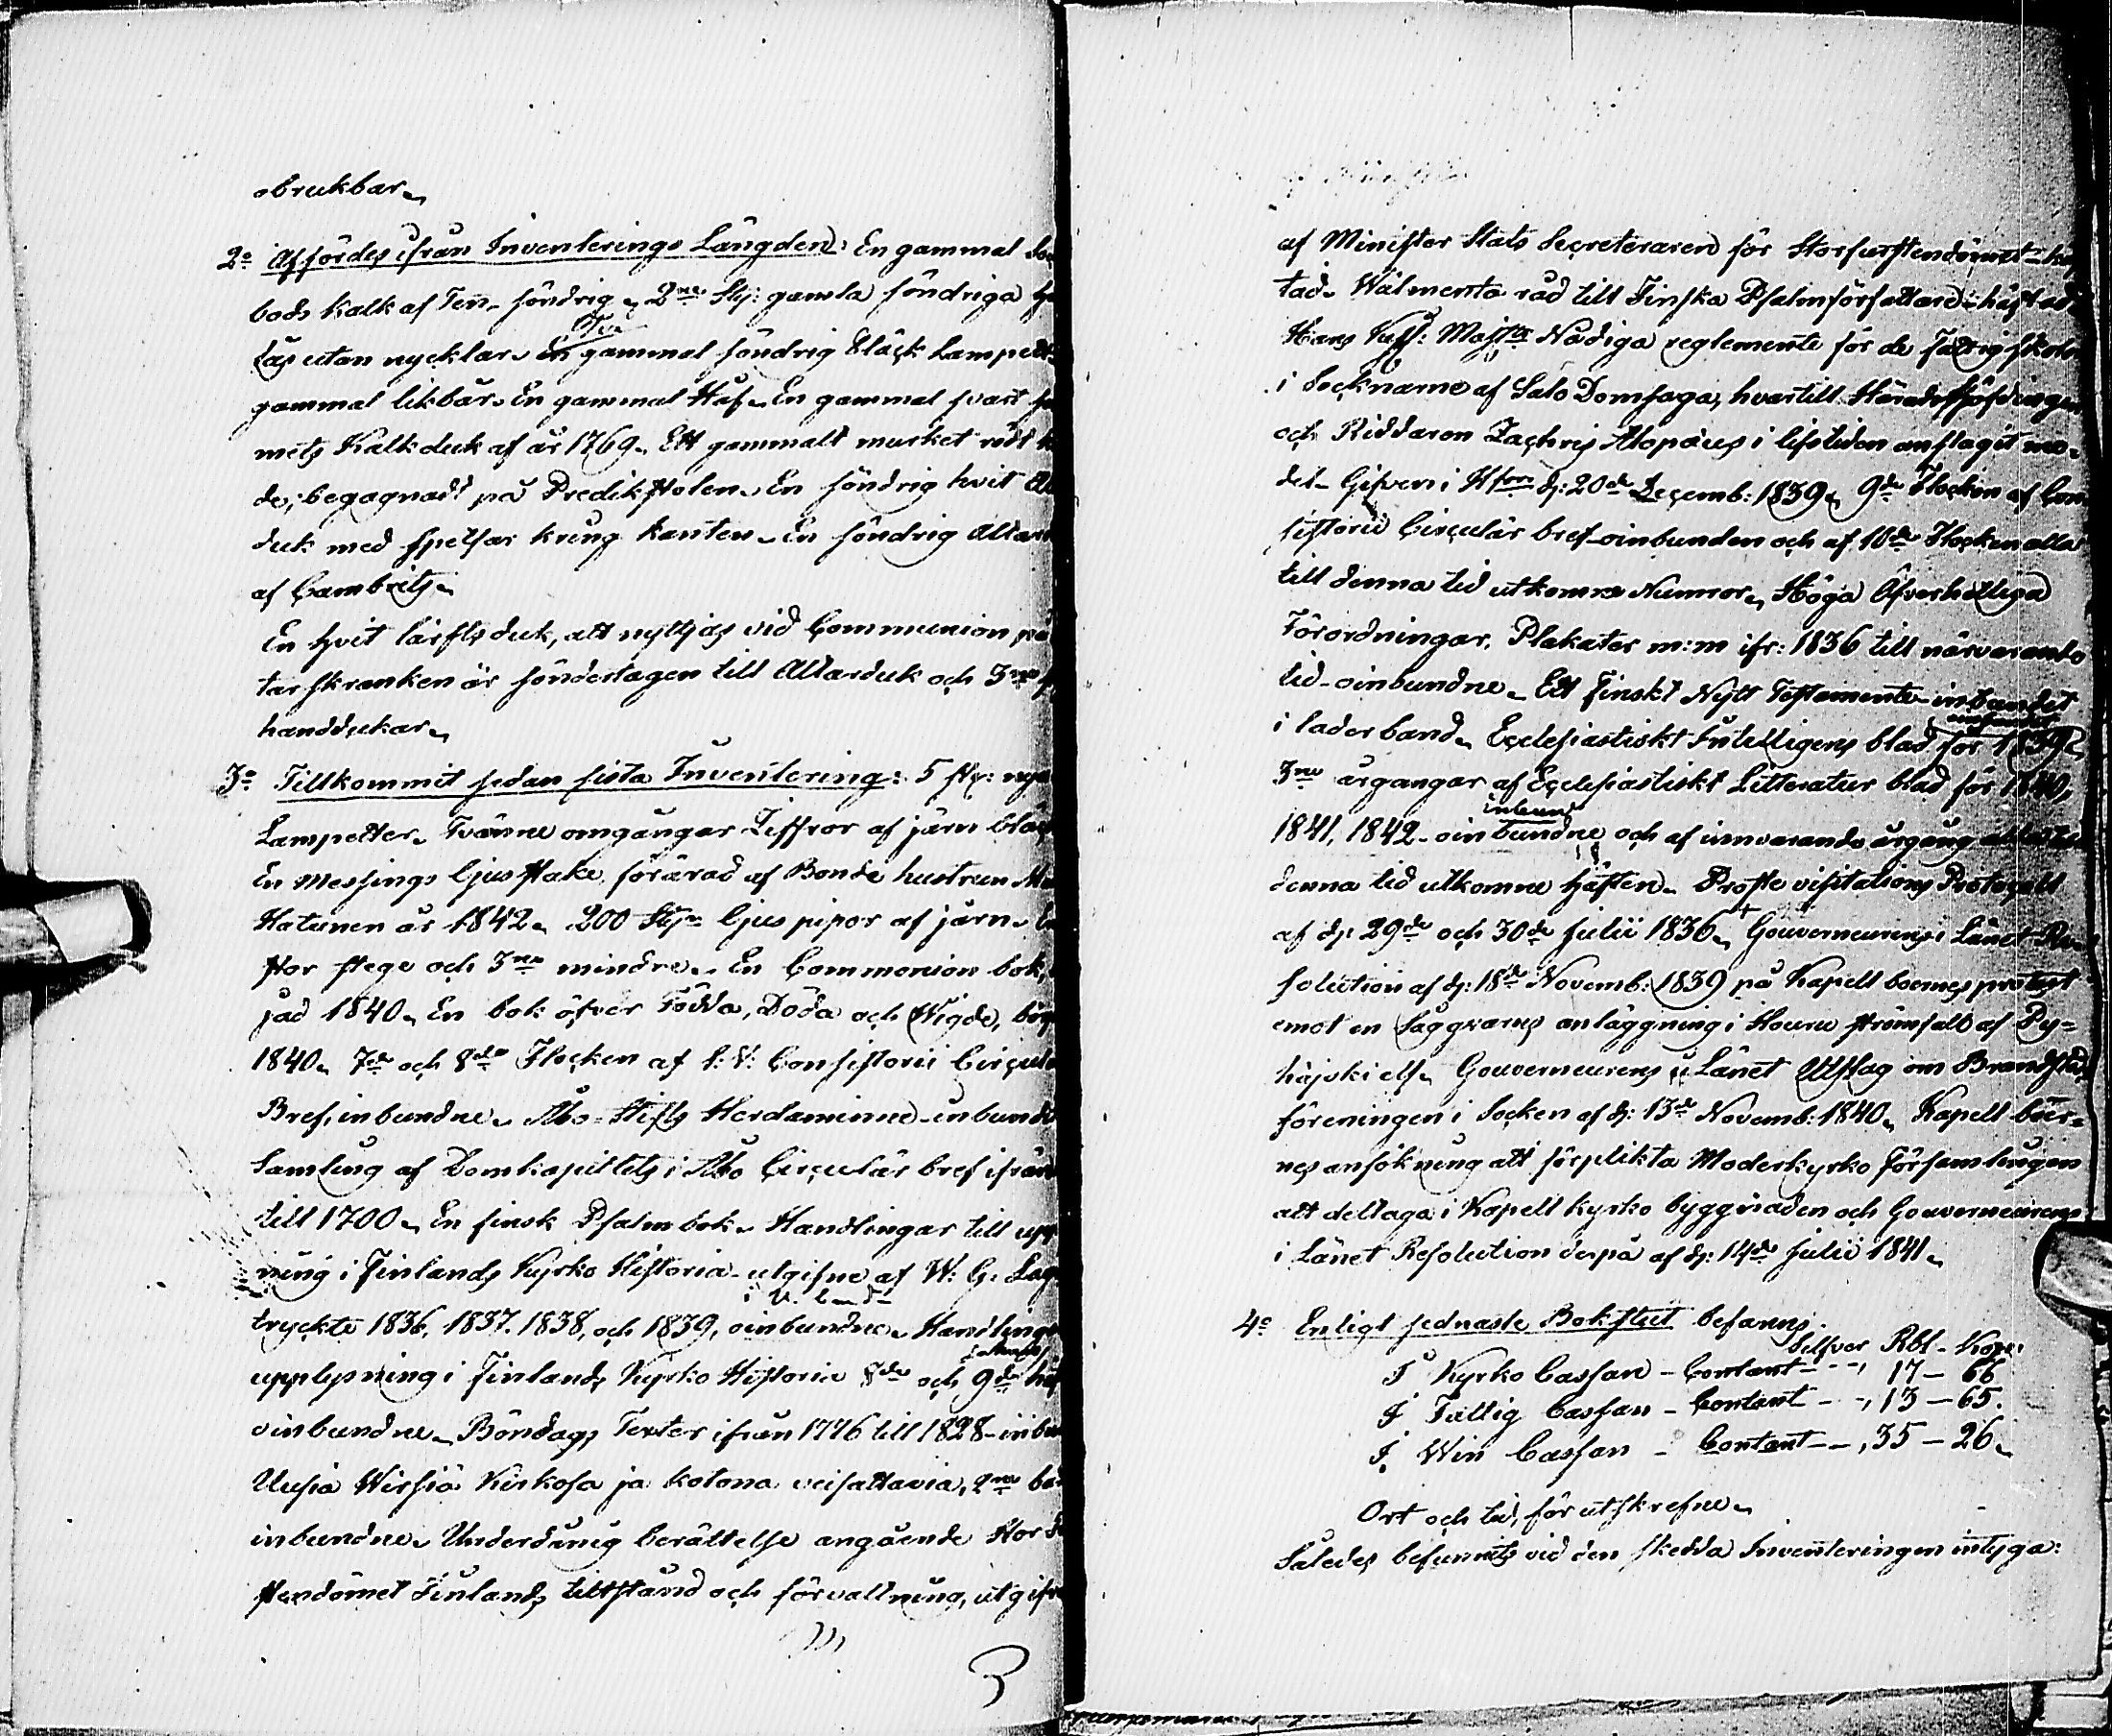 obrukbar.
2o Affördes ifrån Inventerings Längden: En gammal
bods kalk af Ten, söndrig. 2ne Sty: gamla söndriga
lås utan nycklar. Två En gammal söndrig Bläck Lampett
gammal likbår. En gammal Håf. En gammal svart
mets Kalkduk af år 1769. Ett gammalt murket rödt
de, begagnadt på Predikstolen. En söndrig hvit
duk med spetsar kring kanten. En söndrig Altar
af Cambrits.
En hvit lärfts duk, att nyttjas vid Communion på
tar skranken är söndertagen till Altarduk och 3ne
handdukar.
3o Tillkommit sedan sista Inventering: 5 sty: nya
Lampetter. Tvänne omgångar Ziffror af järn bläck
En Messings ljusstake, förärad af Bonde hustrun
Hatunen år 1842. 200 Sty: ljus pipor af järn.
stor stege och 3ne mindre. En Communion bok,
jad 1840. En bok öfver Födda, Döda och Wigde,
1840. 7de och 8de Flocken af l: V: Consistorii Circulär
Bref, inbundne. Åbo Stifts Herdaminne inbundne
Samling af Domkapitlets i Åbo Circulär bref ifrån
till 1700. En finsk Psalmbok. Handlingar till upp
ning i Finlands Kyrko Historia utgifne af W: G: Lag
i V. band
tryckte 1836, 1837. 1838, och 1839, oinbundne. Handlingar
upplysning i Finlands Kyrko Historia 8de och 9de
oinbundne. Böndags Texter ifrån 1776 till 1828
Uusia Wirsiä Kirkosa ja kotona veisattavia, 2ne
inbundne. Underdånig berättelse angående Stor
stendömet Finlands tillstånd och förvaltning, utgifven
3
af Minister Stats Secreteraren för Storfurstendömet
tad. Wälmenta råd till Finska Psalmförfattare häftad.
Hans Kejs: Majts Nådiga reglemente för de fattigskolor
i Socknarne af Salo Domsaga, hvartill Häradshöfdingen
och Riddaren Zachris Alopæus i lifstiden anslagit me-
del. Gifven i Hfors d: 20de Decemb: 1839. 9de Flocken af Con
sistorii Circulär bref oinbunden och af 10de Flocken alla
till denna tid utkomna Numror. Höga Öfverhetliga
Förordningar, Plakater m:m ifr: 1836 till närvarande
tid oinbundne. Ett Finskt Nytt Testamente inbundet
i läder band. Ecclesiastiskt Intelligens blad för 1839.
3ne årgångar af Ecclesiastiskt Litteratur blad för 1840,
1841, 1842 oinbundne och af innevarande årgång
denna tid utkomne häften. Proste visitations Protocoll
af d: 29de och 30de Julii 1836. Gouverneurens i Länet Re-
solution af d: 18de Novemb: 1839 på Kapell boernes protest
emot en Såggvarns anläggning i Houru strömfall af Py=
häjoki elf. Gouverneurens i Länet Utslag om Brandstods
föreningen i Socken af d: 13de Novemb: 1840. Kapell boer=
nes ansökning att förplikta Moderkyrko Församlingen
att deltaga i Kapell kyrko byggnaden och Gouverneurens
i Länet Resolution derpå af d: 14de Julii 1841.
4o Enligt sednaste Bokslut befanns:
Silfver Rbl - Kop:
I Kyrko Cassan - Contant - - 17 - 66
I Fattig Cassan - Contant - - 13 - 65.
I Win Cassan - Contant - - 35 - 26.
Ort och tid, förutskrefne.
Således befunnits vid den skedda Inventeringen intyga: